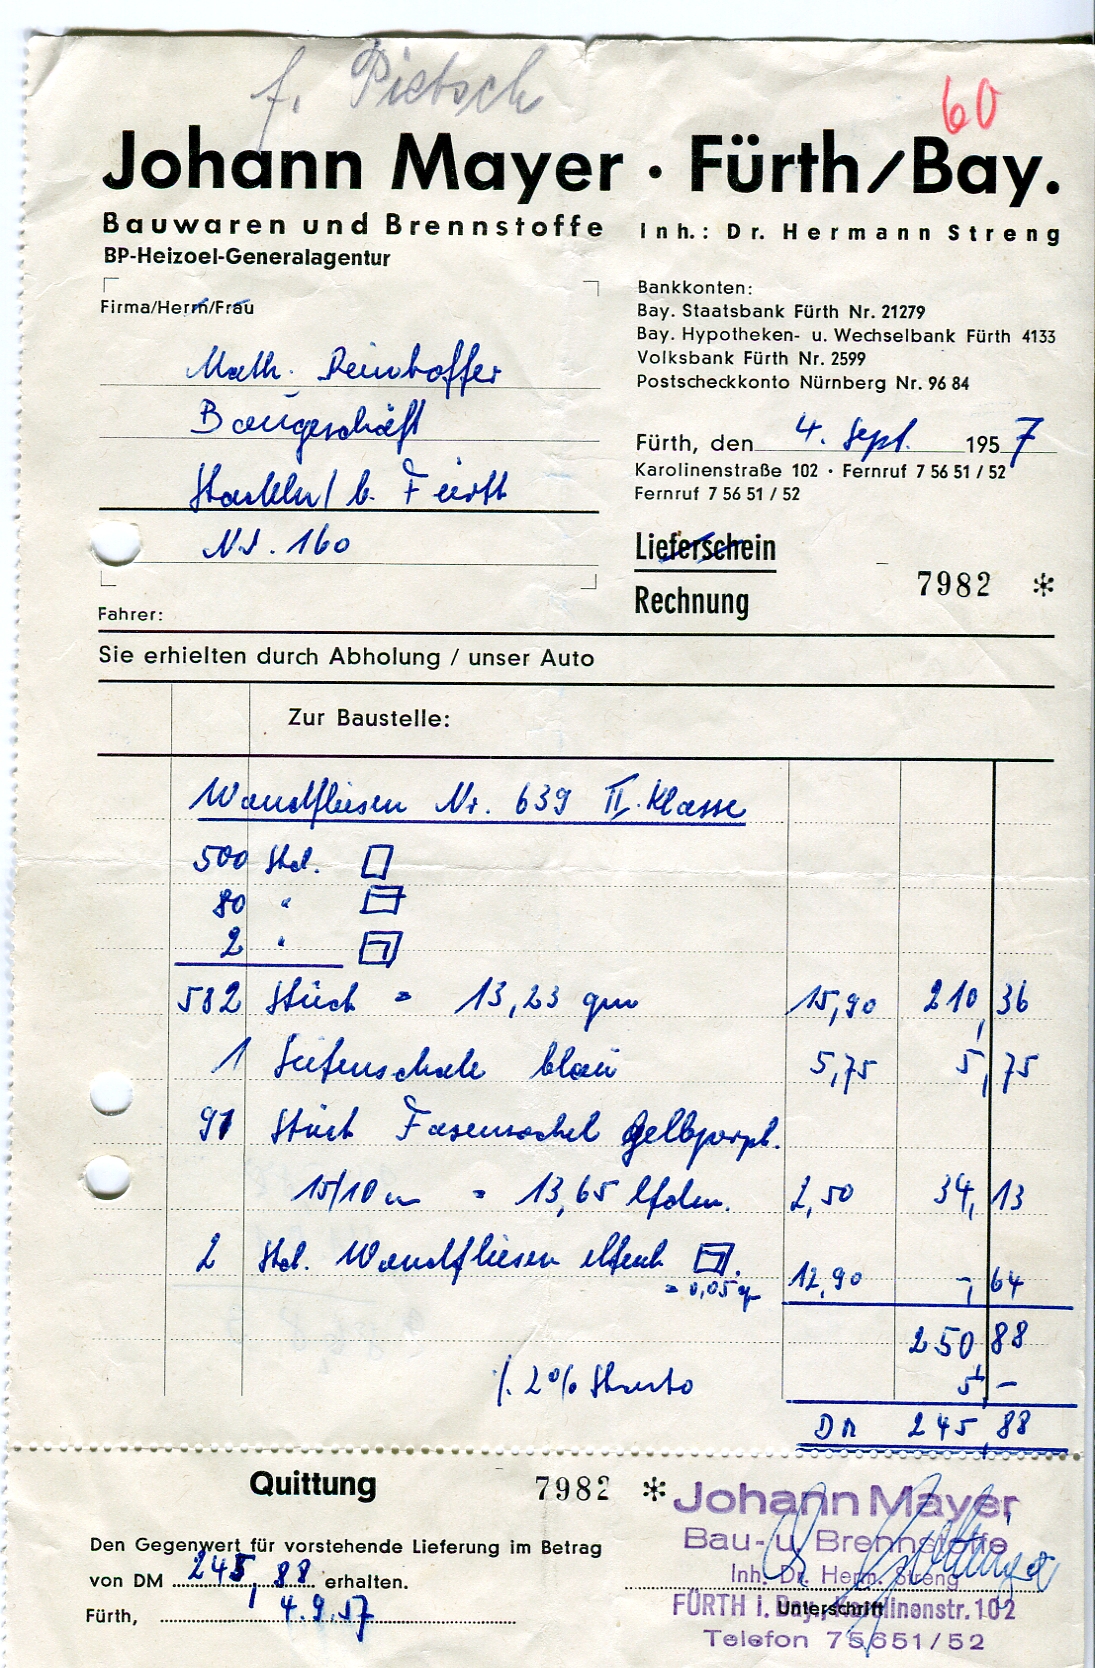 f. Pietsch
60
Johann Mayer · Fürth/Bay.
Bauwaren und Brennstoffe Inh.: Dr. Hermann Streng
BP-Heizoel-Generalagentur
Firma/Herrn/Frau
Bankkonten:
Bay. Staatsbank Fürth Nr. 21279
Bay. Hypotheken- u. Wechselbank Fürth 4133
Volksbank Fürth Nr. 2599
Postscheckkonto Nürnberg Nr. 96 84
Math. Reinhoffer
Baugeschäft
b. Fürth
Nr. 160
Fürth, den 4. Sept. 1957
Karolinenstraße 102 · Fernruf 7 56 51 / 52
Fernruf 7 56 51 / 52
Lieferschein
Rechnung 7982 *
Fahrer:
Sie erhielten durch Abholung / unser Auto
Zur Baustelle:
Wandfliesen Nr. 639 II. Klasse
500 Stck.
80 "
2 "
582 Stück = 13,23 qm 15,90 210,36
1 Seifenschale blau 5,75 5,75
91 Stück Fasensockel gelbporph.
15/10 cm = 13,65 lfdm. 2,50 34,13
2 Stck. Wandfliesen elfenb.
= 0,05 q 12,90 -,64
250,88
./. 2% Skonto 5,-
DM 245,88
Quittung 7982 *
Den Gegenwert für vorstehende Lieferung im Betrag
von DM 245,88 erhalten.
Fürth, 4.9.57
Johann Mayer
Bau- u. Brennstoffe
Inh. Dr. Herm. Streng
Unterschrift
FÜRTH i. Bay., Karolinenstr. 102
Telefon 75651/52